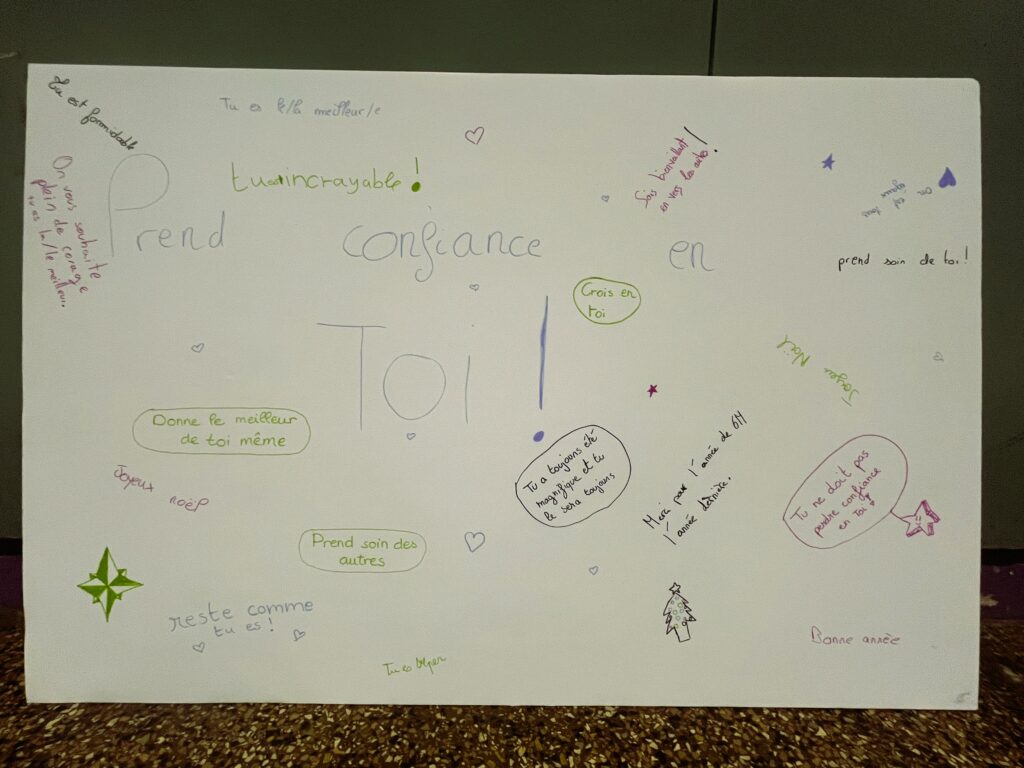 Tu est formidable
Tu es le/la meilleur/e
tu es incrayable!
Sois bienvallant
en vers les autres!
On vous souhaite
plein de corage
tu es la/le meilleur.
Prend confiance en
Toi!
On
tous
prend soin de toi!
Crois en
toi
Joyeu Noël
Donne le meilleur
de toi même
Tu a toujours été
magnifique et tu
le sera toujours
Merci pour l'année de 6H
l'année dernière.
Tu ne doit pas
perdre confiance
en Toi!
Joyeux
noël
Prend soin des
autres
reste comme
tu es!
Tu es
Bonne année